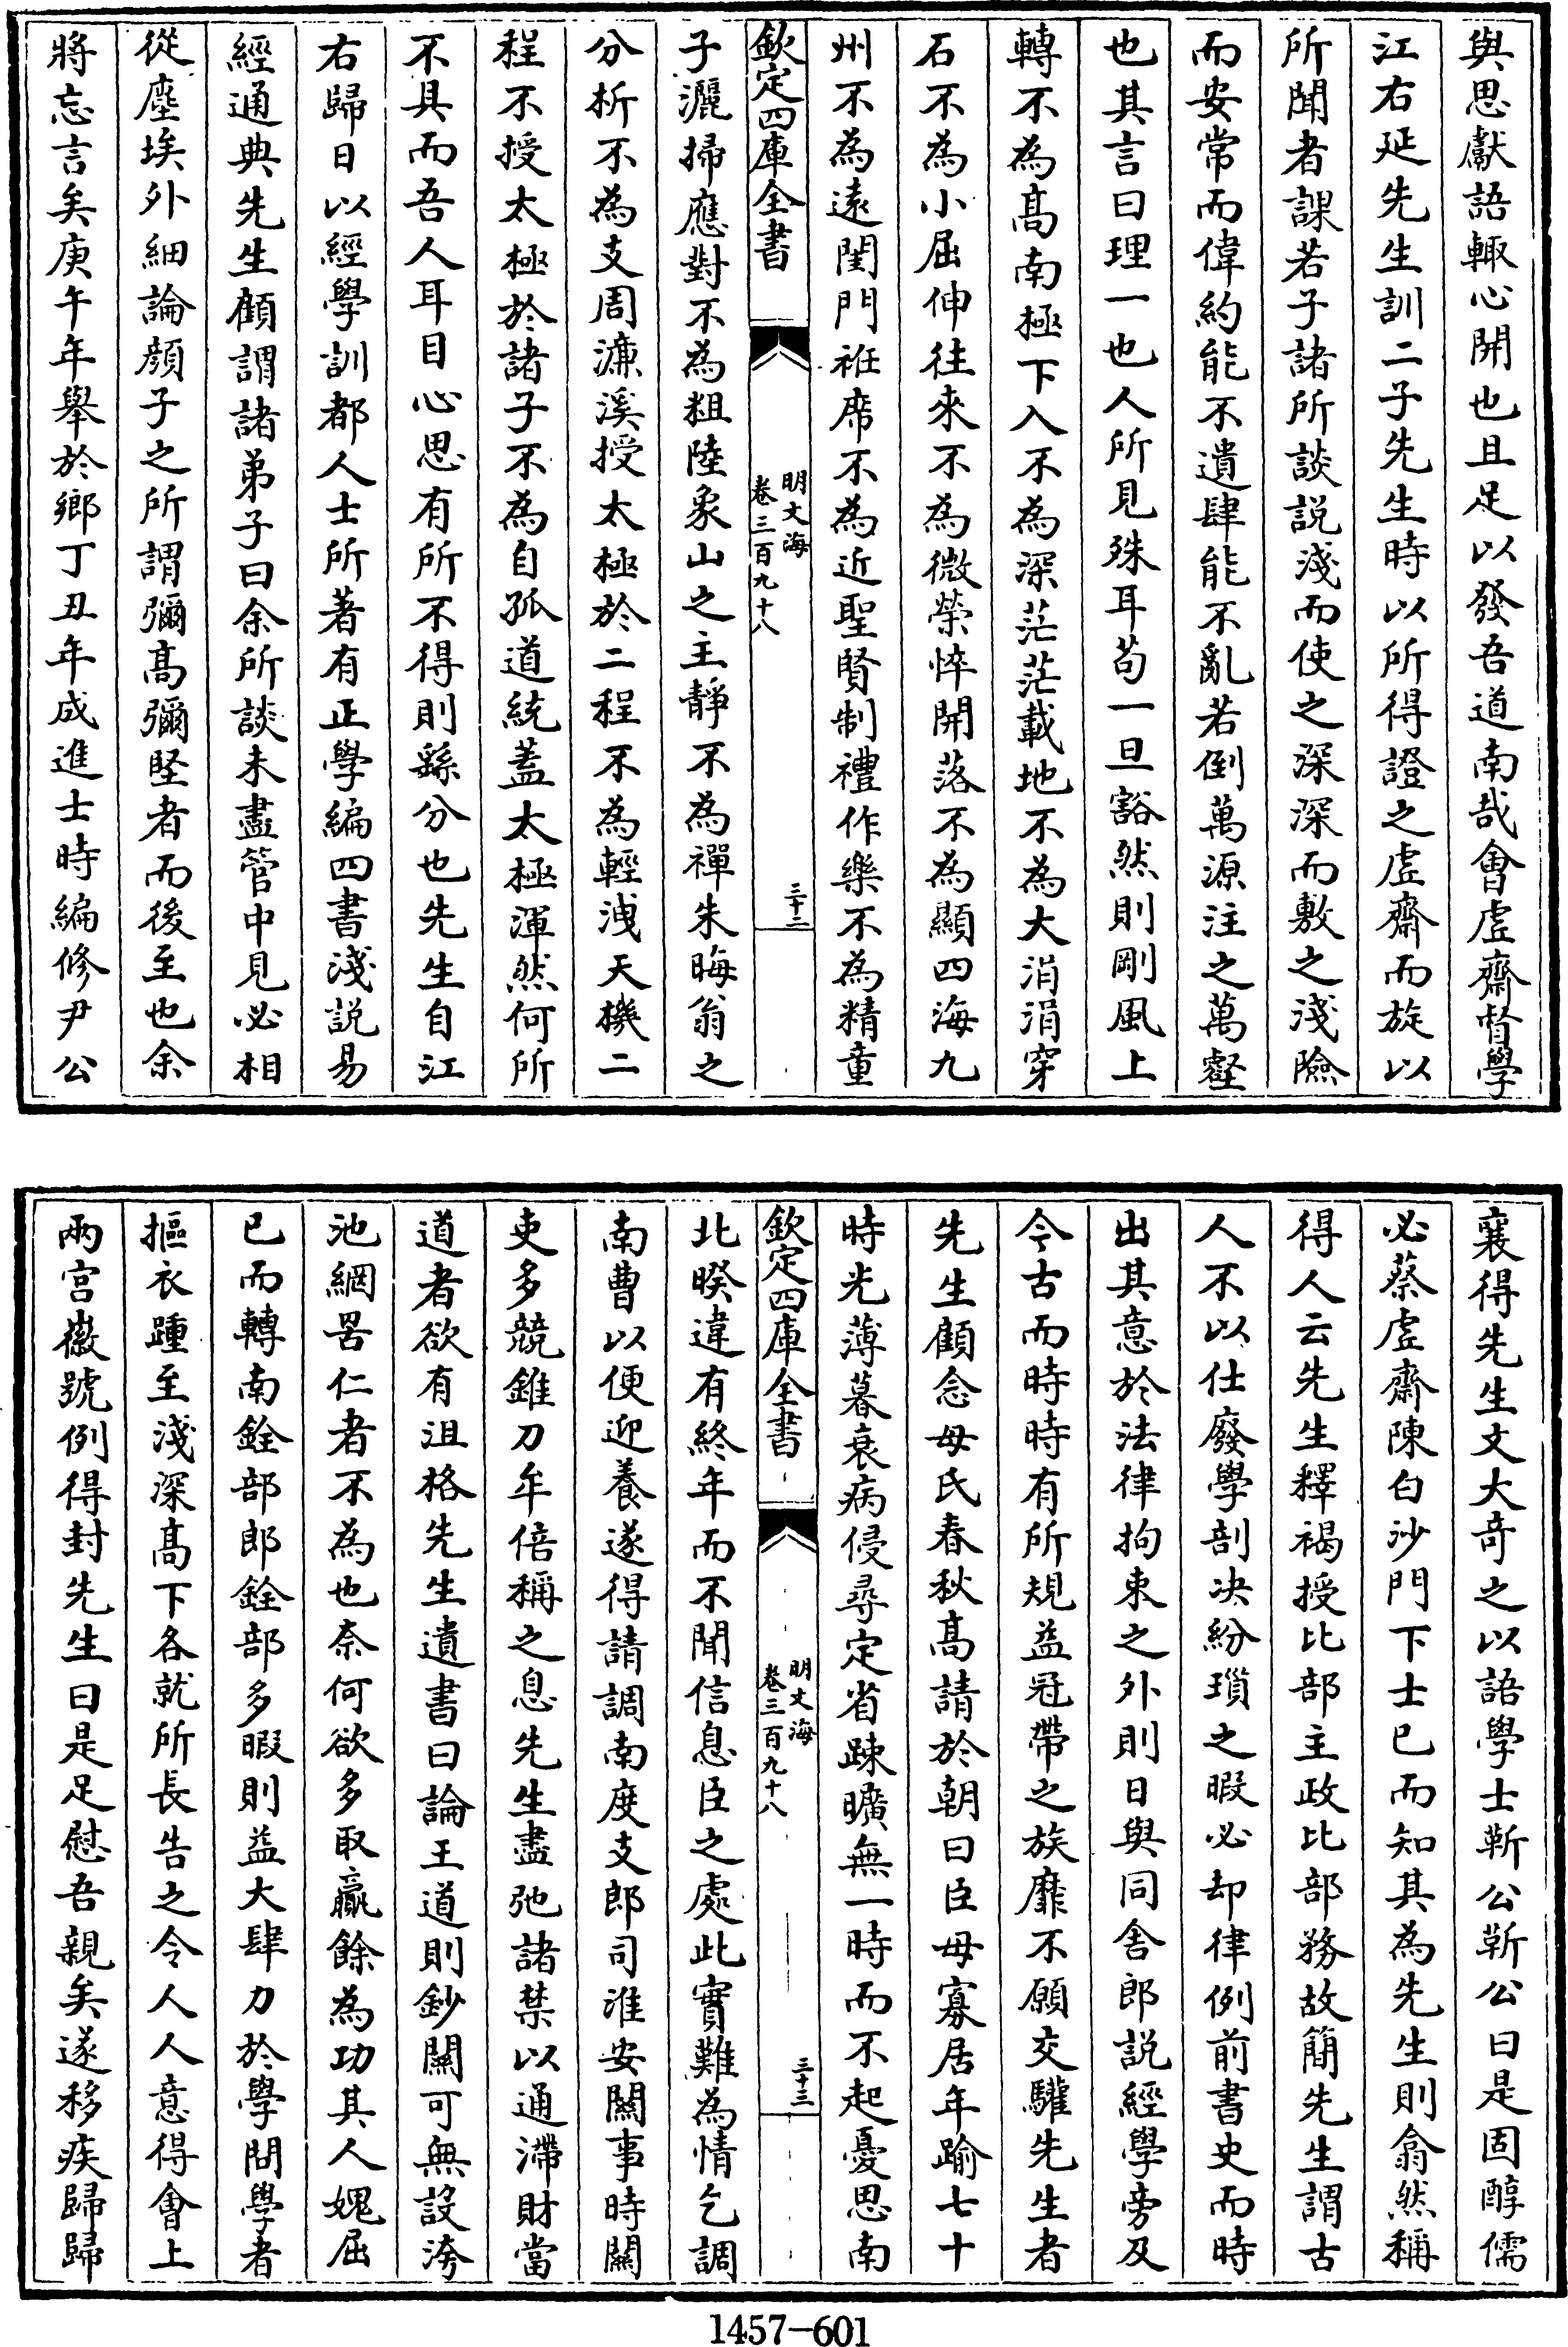 與思獻語輙心開也且足以發吾道南哉會虛齋督學
江右延先生訓二子先生時以所得證之虛齋而旋以
所聞者課若子諸所談説淺而使之深深而敷之淺險
而安常而偉約能不遺肆能不亂若倒萬源注之萬壑
也其言曰理一也人所見殊耳苟一旦豁然則剛風上
轉不為髙南極下入不為深茫茫載地不為大涓涓穿
石不為小屈伸往來不為微榮悴開落不為顯四海九
州不為逺閨門袵席不為近聖賢制禮作樂不為精童
欽定四庫全書
明文海
卷三百九十八
三十二
子灑掃應對不為粗陸象山之主靜不為禪朱晦翁之
分析不為支周濓溪授太極於二程不為輕洩天機二
程不授太極於諸子不為自孤道統蓋太極渾然何所
不具而吾人耳目心思有所不得則繇分也先生自江
右歸日以經學訓都人士所著有正學編四書淺説易
經通典先生顧謂諸弟子曰余所談未盡管中見必相
從塵埃外細論顔子之所謂彌髙彌堅者而後至也余
將忘言矣庚午年舉於鄉丁丑年成進士時編修尹公
襄得先生文大竒之以語學士靳公靳公曰是固醇儒
必蔡虛齋陳白沙門下士已而知其為先生則翕然稱
得人云先生釋褐授比部主政比部務故簡先生謂古
人不以仕廢學剖决紛瑣之暇必却律例前書史而時
出其意於法律拘束之外則日與同舍郎説經學旁及
今古而時時有所規益冠帶之族靡不願交驩先生者
先生顧念母氏春秋髙請於朝曰臣母寡居年踰七十
時光薄暮衰病侵尋定省踈曠無一時而不起憂思南
欽定四庫全書
明文海
卷三百九十八
三十三
北暌違有終年而不聞信息臣之處此實難為情乞調
南曹以便迎養遂得請調南度支郎司淮安闗事時闗
吏多競錐刀牟倍稱之息先生盡弛諸禁以通滯財當
道者欲有沮格先生遺書曰論王道則鈔闗可無設洿
池網罟仁者不為也奈何欲多取贏餘為功其人媿屈
已而轉南銓部郎銓部多暇則益大肆力於學問學者
摳衣踵至淺深髙下各就所長告之令人人意得會上
兩宫徽號例得封先生曰是足慰吾親矣遂移疾歸歸
1457-601